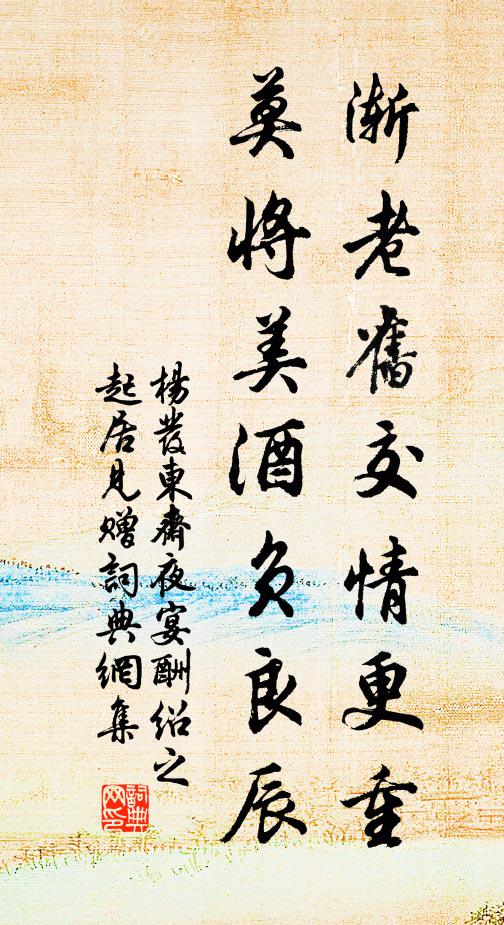 漸老舊交情更重
莫將美酒負良辰
楊發東齋夜宴酬紹之
起居見贈詞典網集
詞典
网印